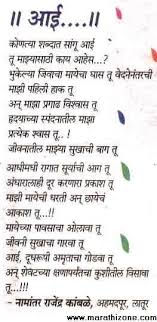 ॥ आई....॥
कोणत्या शब्दात सांगू आई
तू माझ्यासाठी काय आहेस...?
भुकेल्या जिवाचा मायेचा घास तू वेदनेनंतरची
माझी पहिली हाक तू
अन् माझा प्रगाढ विश्वास तू
हृदयाच्या स्पंदनातील माझा
प्रत्येक श्वास तू.. !
जीवनातील माझ्या सुखाची बाग तू
आधीमधी रागात सूर्याची आग तू
अंधारालाही दूर करणारा प्रकाश तू
माझी मायेची धरती अन् छायेचं
आकाश तू...!
मायेच्या पावसाचा ओलावा तू
जीवनी सुखाचा गारवा तू
आई, दूधरूपी अमृताचा गोडवा तू
अन् शेवटच्या क्षणापर्यंतचा कुशीतील विसावा
तू...!!!
- नामांतर राजेंद्र कांबळे, अहमदपूर, लातूर
www.marathizone.com